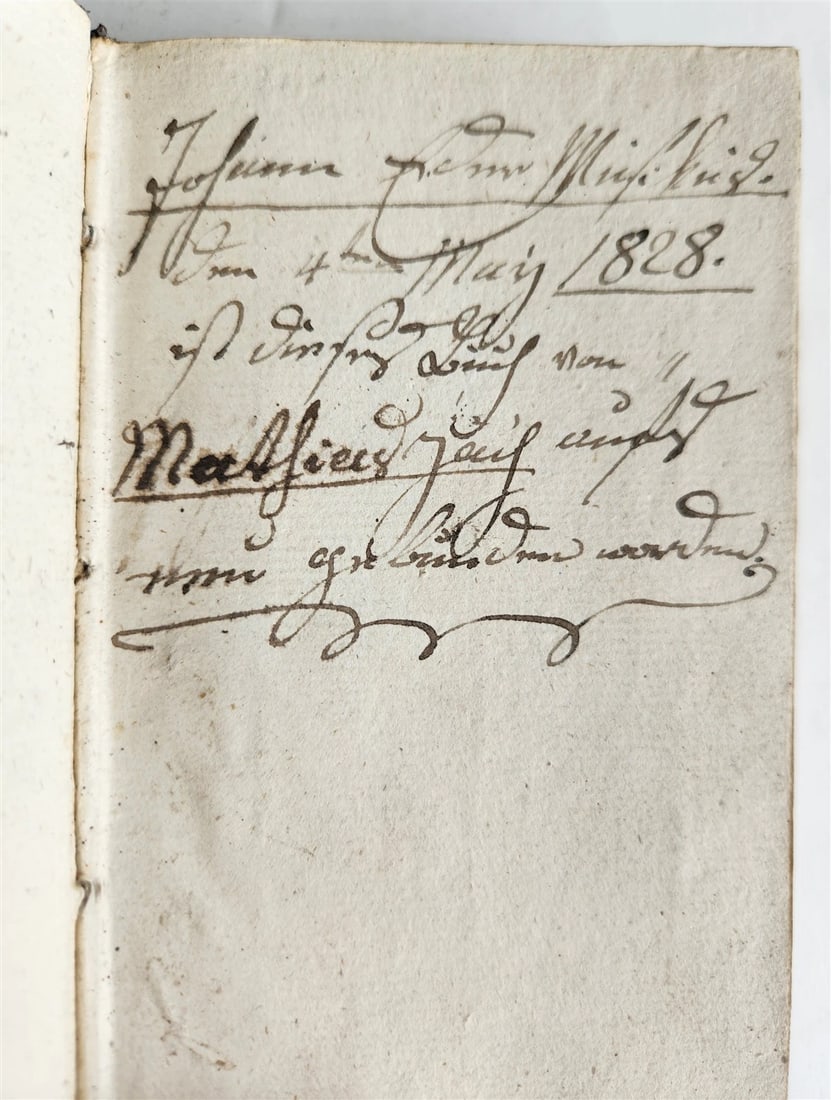 Johann Eder Musikus.
den 4ten May 1828.
ist dieses Buch von "
Mathias auf's
neu gebunden worden.